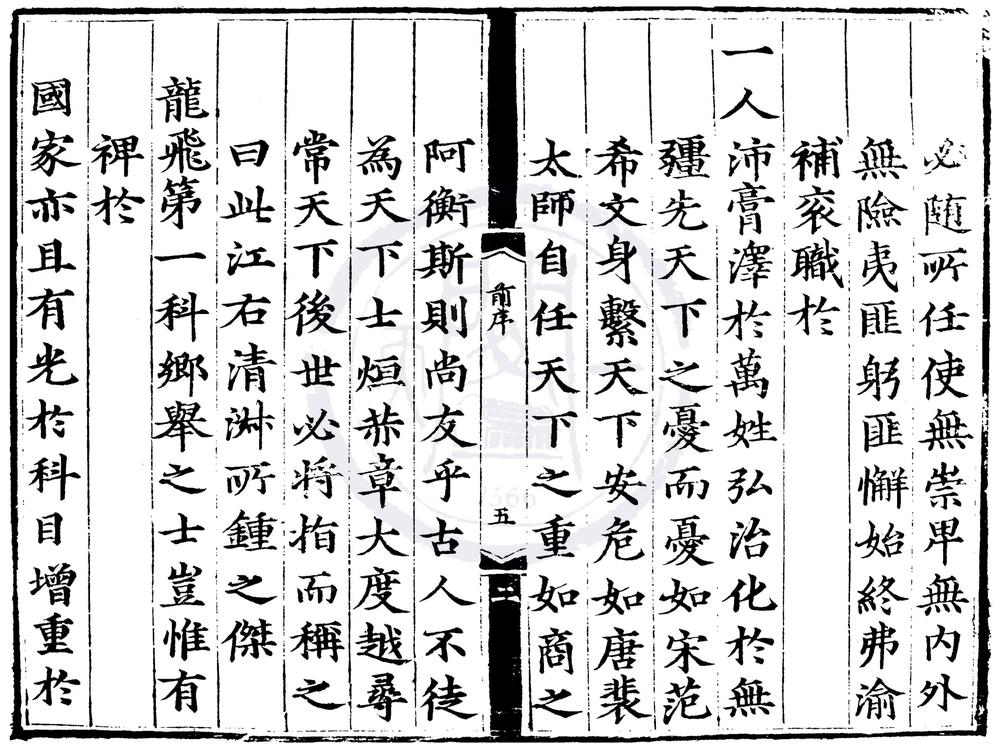 必随所任使無崇卑無内外
無險夷匪躬匪懈始終弗渝
補衮職於
一人沛膏澤於萬姓弘治化於無
疆先天下之憂而憂如宋范
希文身繫天下安危如唐裴
太師自任天下之重如商之
前序
五
阿衡斯則尚友乎古人不徒
為天下士烜恭章大度越尋
常天下後世必將指而稱之
曰此江右清淋所鍾之傑
龍飛第一科鄉舉之士豈惟有
裨於
國家亦且有光於科目增重於